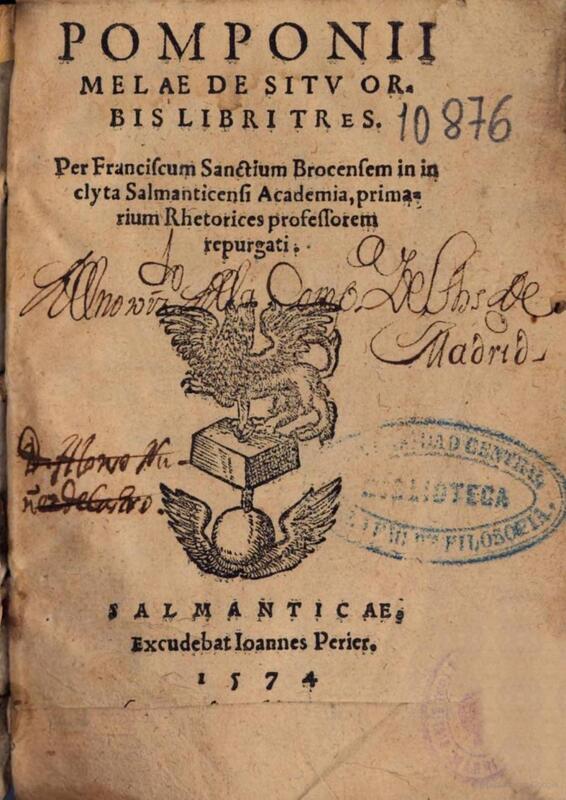 POMPONII
MELAE DE SITV OR-
BIS LIBRI TRES.
10876
Per Franciſcum Sanctium Brocenſem in in
clyta Salmanticenſi Academia, prima-
rium Rhetorices profeſſorem
repurgati.
Madrid
BIBLIOTECA
FILOSOFIA
SALMANTICAE,
Excudebat Ioannes Perier.
1574